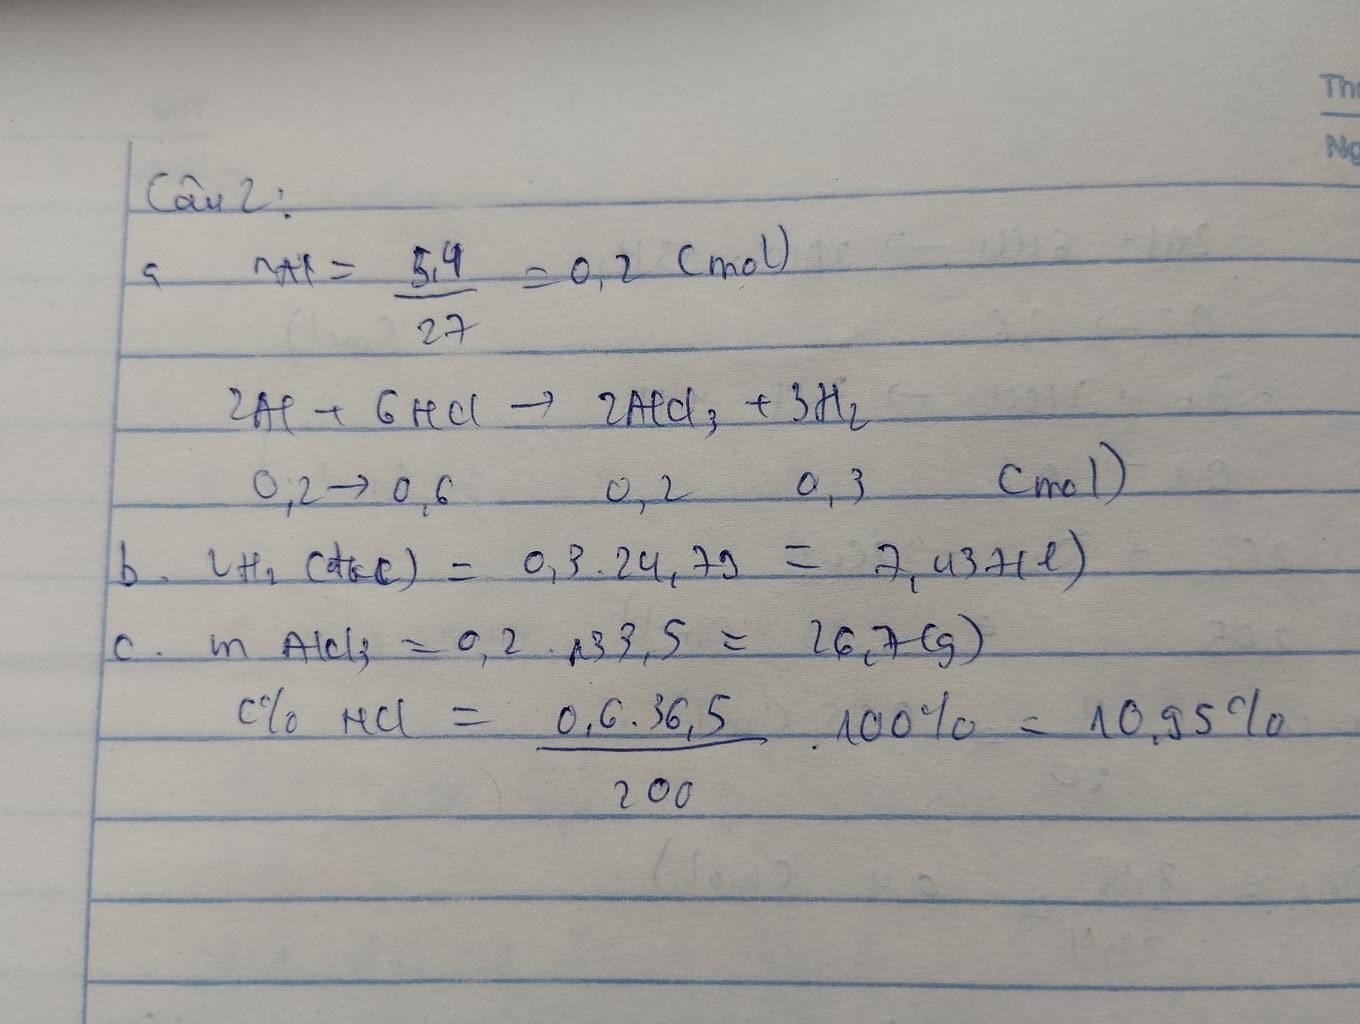 Th
Ng
Câu 2:
a nAl = 5,4 / 27 = 0,2 (mol)
2Al + 6HCl → 2AlCl₃ + 3H₂
0,2 → 0,6 0,2 0,3 (mol)
b. VH₂ (đkc) = 0,3.24,79 = 7,437(l)
c. m AlCl₃ = 0,2 . 133,5 = 26,7(g)
C% HCl = 0,6.36,5 / 200 . 100% = 10,95%